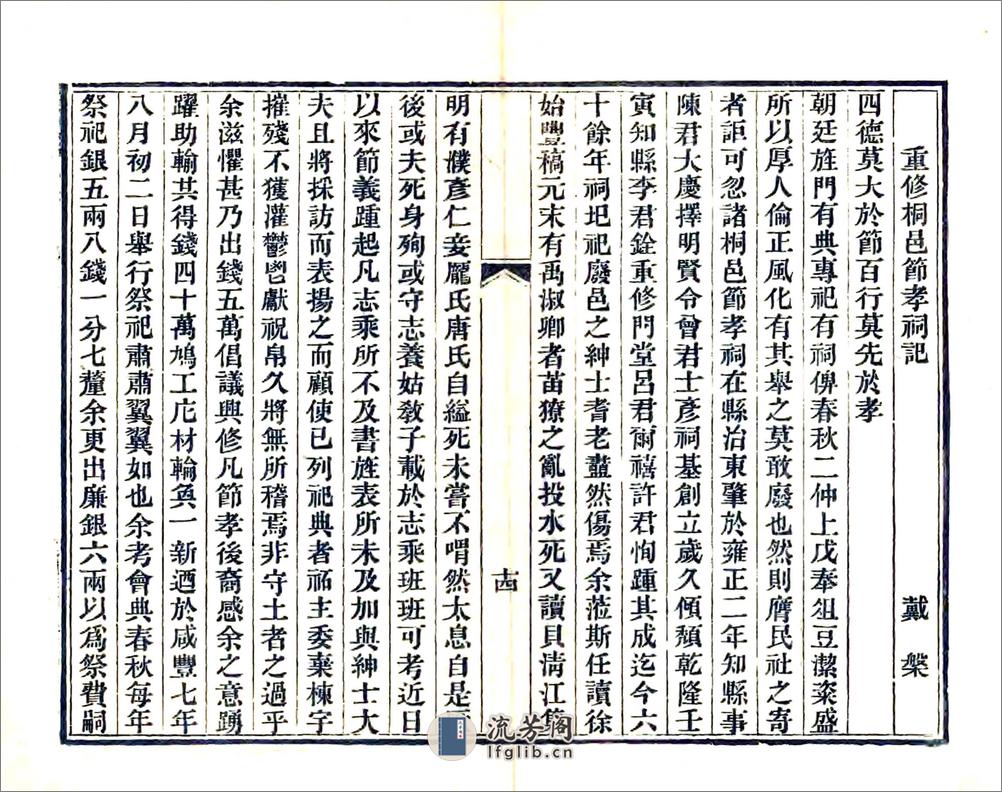 重修桐邑節孝祠記　戴槃
四德莫大於節百行莫先於孝
朝廷旌門有典專祀有祠俾春秋二仲上戊奉俎豆潔粢盛
所以厚人倫正風化有其舉之莫敢廢也然則膺民社之寄
者詎可忽諸桐邑節孝祠在縣治東肇於雍正二年知縣事
陳君大慶擇明賢令曾君士彥祠基創立歲久傾頹乾隆壬
寅知縣李君銓重修門堂呂君爾禧許君恂踵其成迄今六
十餘年祠圯祀廢邑之紳士耆老盡然傷焉余蒞斯任讀徐
始豐稿元末有禹淑卿者苗獠之亂投水死又讀貝清江集
十四
明有濮彥仁妾龐氏唐氏自縊死未嘗不喟然太息自是
後或夫死身殉或守志養姑敎子載於志乘班班可考近日
以來節義踵起凡志乘所不及書旌表所未及加與紳士大
夫且將採訪而表揚之而顧使已列祀典者祏主委棄棟宇
摧殘不獲灌鬱鬯獻祝帛久將無所稽焉非守土者之過乎
余滋懼甚乃出錢五萬倡議興修凡節孝後裔感余之意踴
躍助輸共得錢四十萬鳩工庀材輪奐一新迺於咸豐七年
八月初二日舉行祭祀肅肅翼翼如也余考會典春秋每年
祭祀銀五兩八錢一分七釐余更出廉銀六兩以爲祭費嗣
流芳閣
lfglib.cn